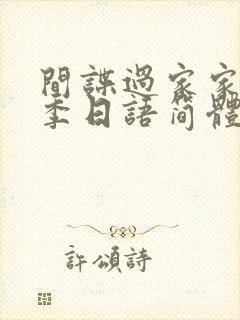 間諜過家家
季日語简體
許頌詩